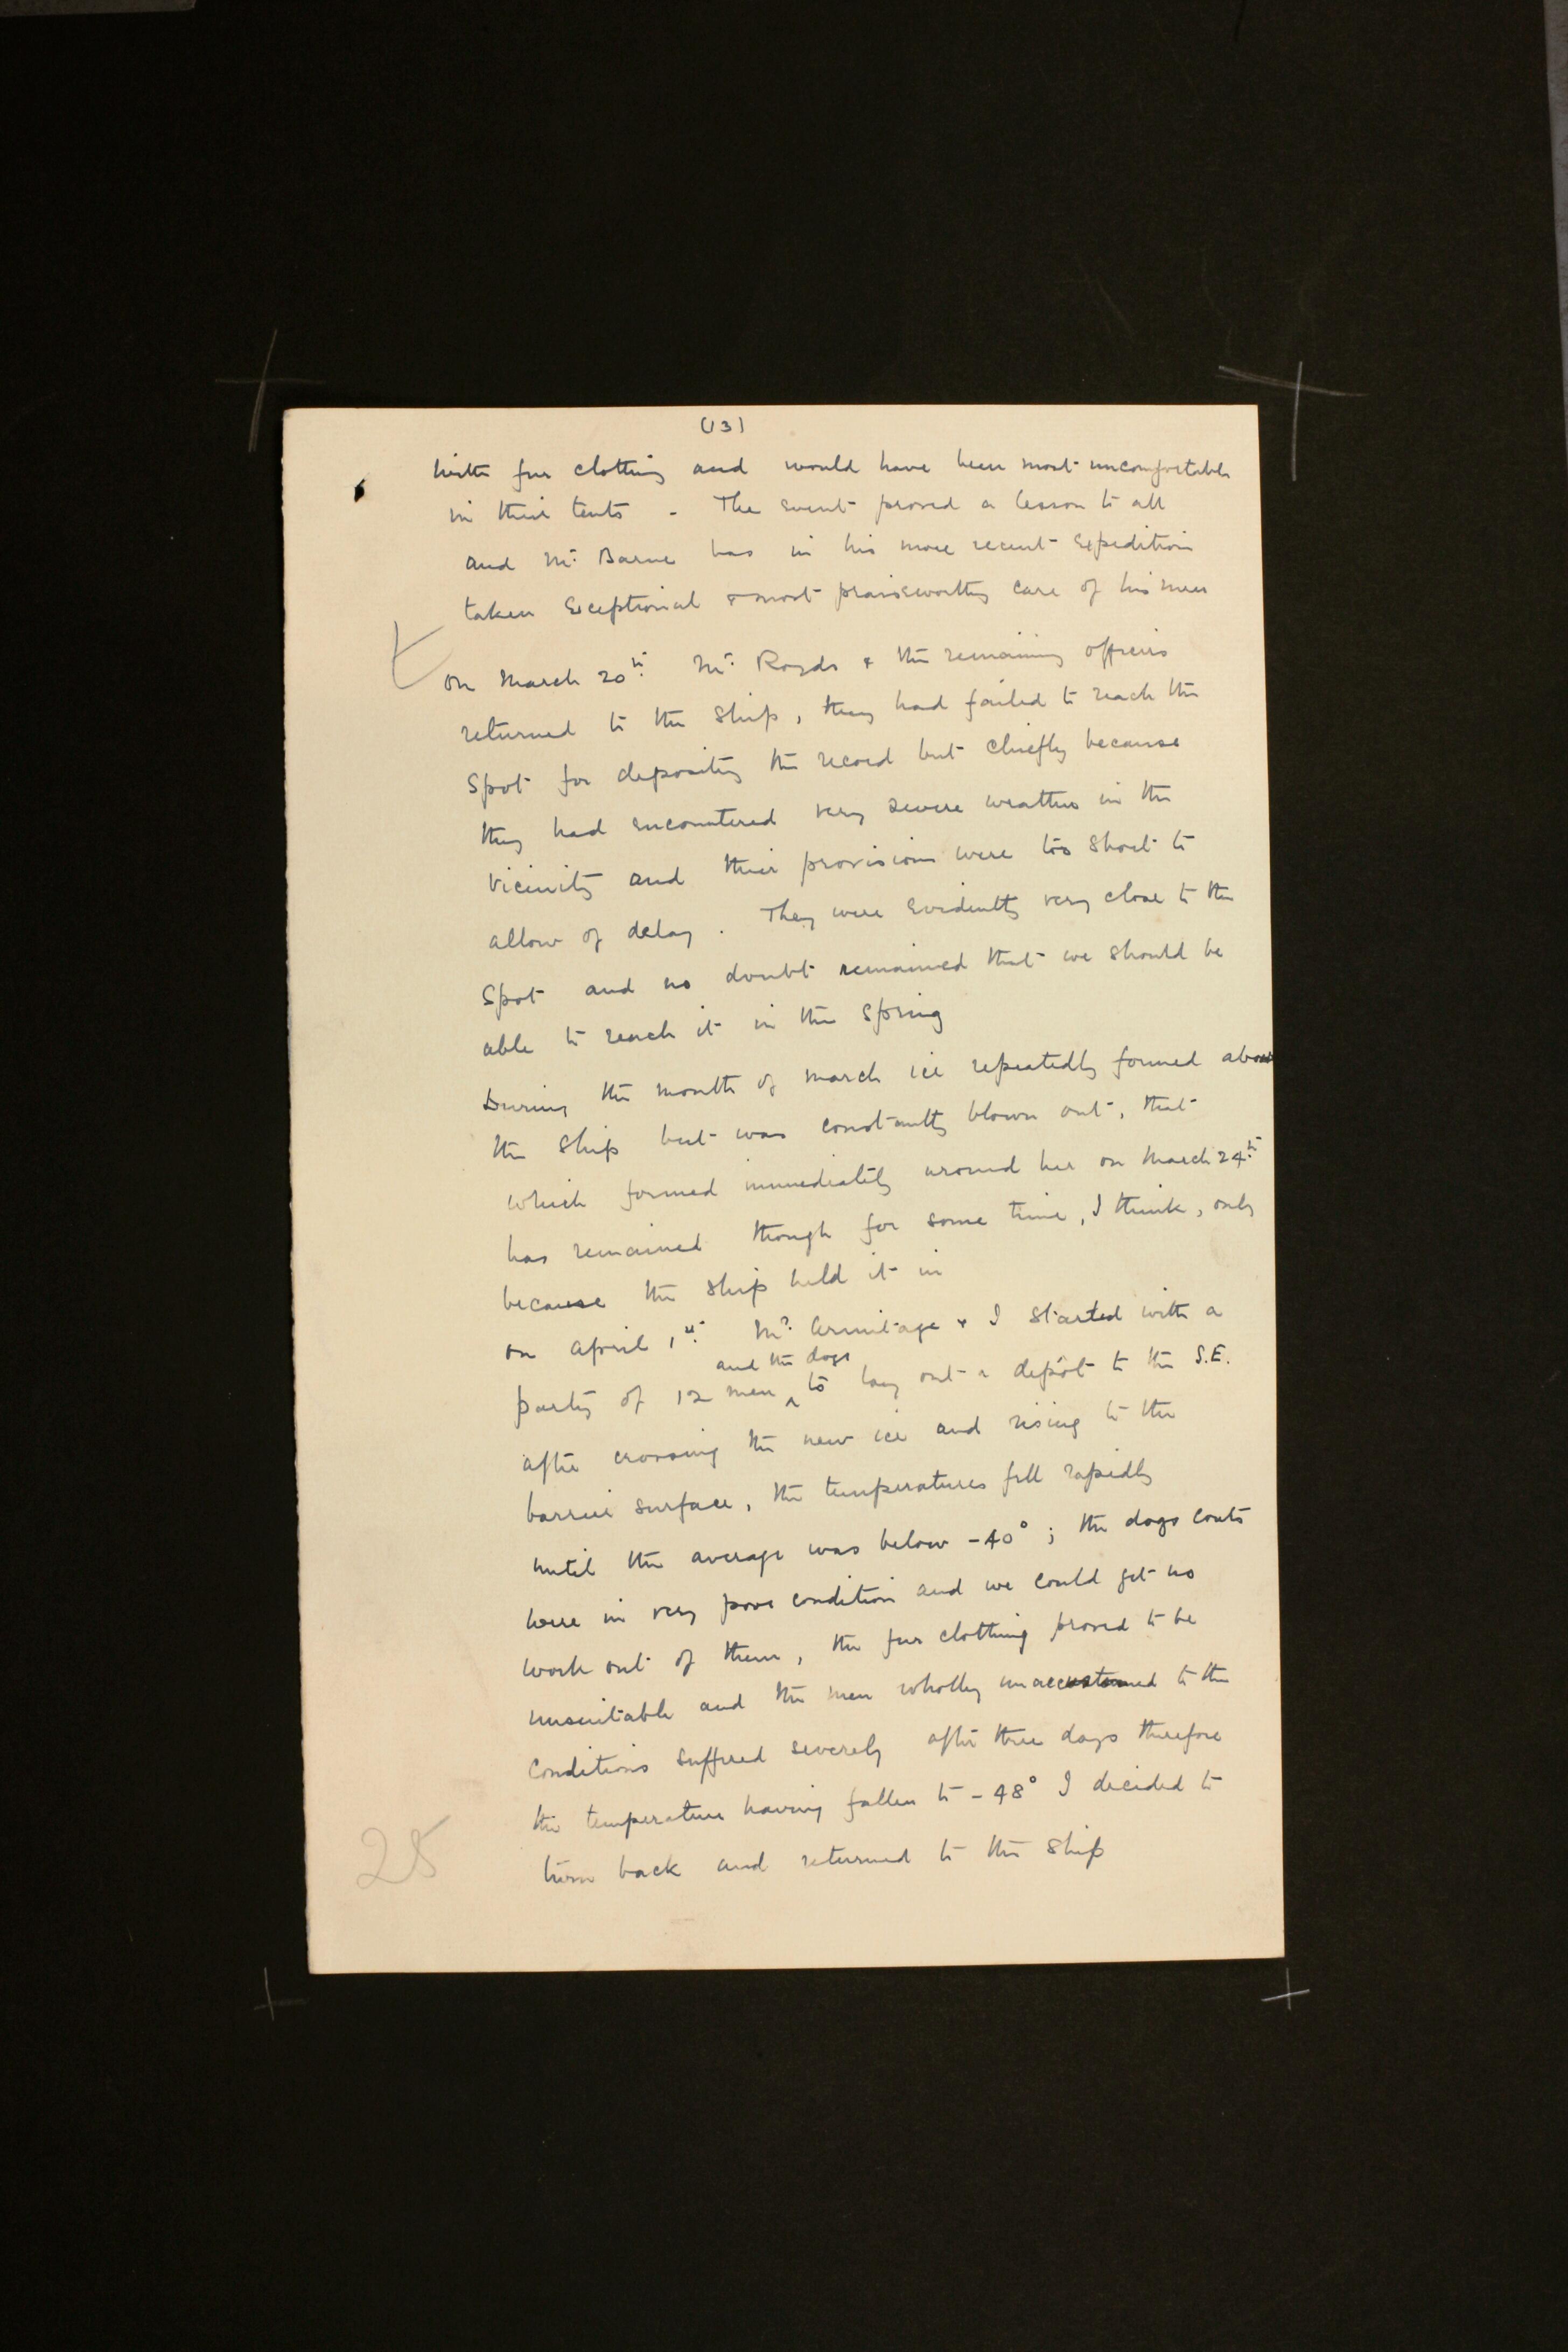 (13)
with fur clothing and would have been most uncomfortable
in their tents - The event proved a lesson to all
and Mr. Barne has in his more recent expedition
taken exceptional & most praiseworthy care of his men
on March 20th. Mr. Royds & the remaining officers
returned to the ship, they had failed to reach the
spot for depositing the record but chiefly because
they had encountered very severe weather in the
vicinity and their provisions were too short to
allow of delay. They were evidently very close to the
spot and no doubt remained that we should be
able to reach it in the spring
During the month of March ice repeatedly formed about
the ship but was constantly blown out, that
which formed immediately around her on March 24th.
has remained though for some time, I think, only
because the ship held it in
on April 1st. Mr. Armitage & I started with a
and the dogs
party of 12 men ^ to lay out a depôt to the S.E.
after crossing the new ice and rising to the
barrier surface, the temperatures fell rapidly
until the average was below -40°; the dogs coats
were in very poor condition and we could get no
work out of them, the fur clothing proved to be
unsuitable and the men wholly unaccustomed to the
conditions suffered severely after three days therefore
the temperature having fallen to -48° I decided to
turn back and returned to the ship
25